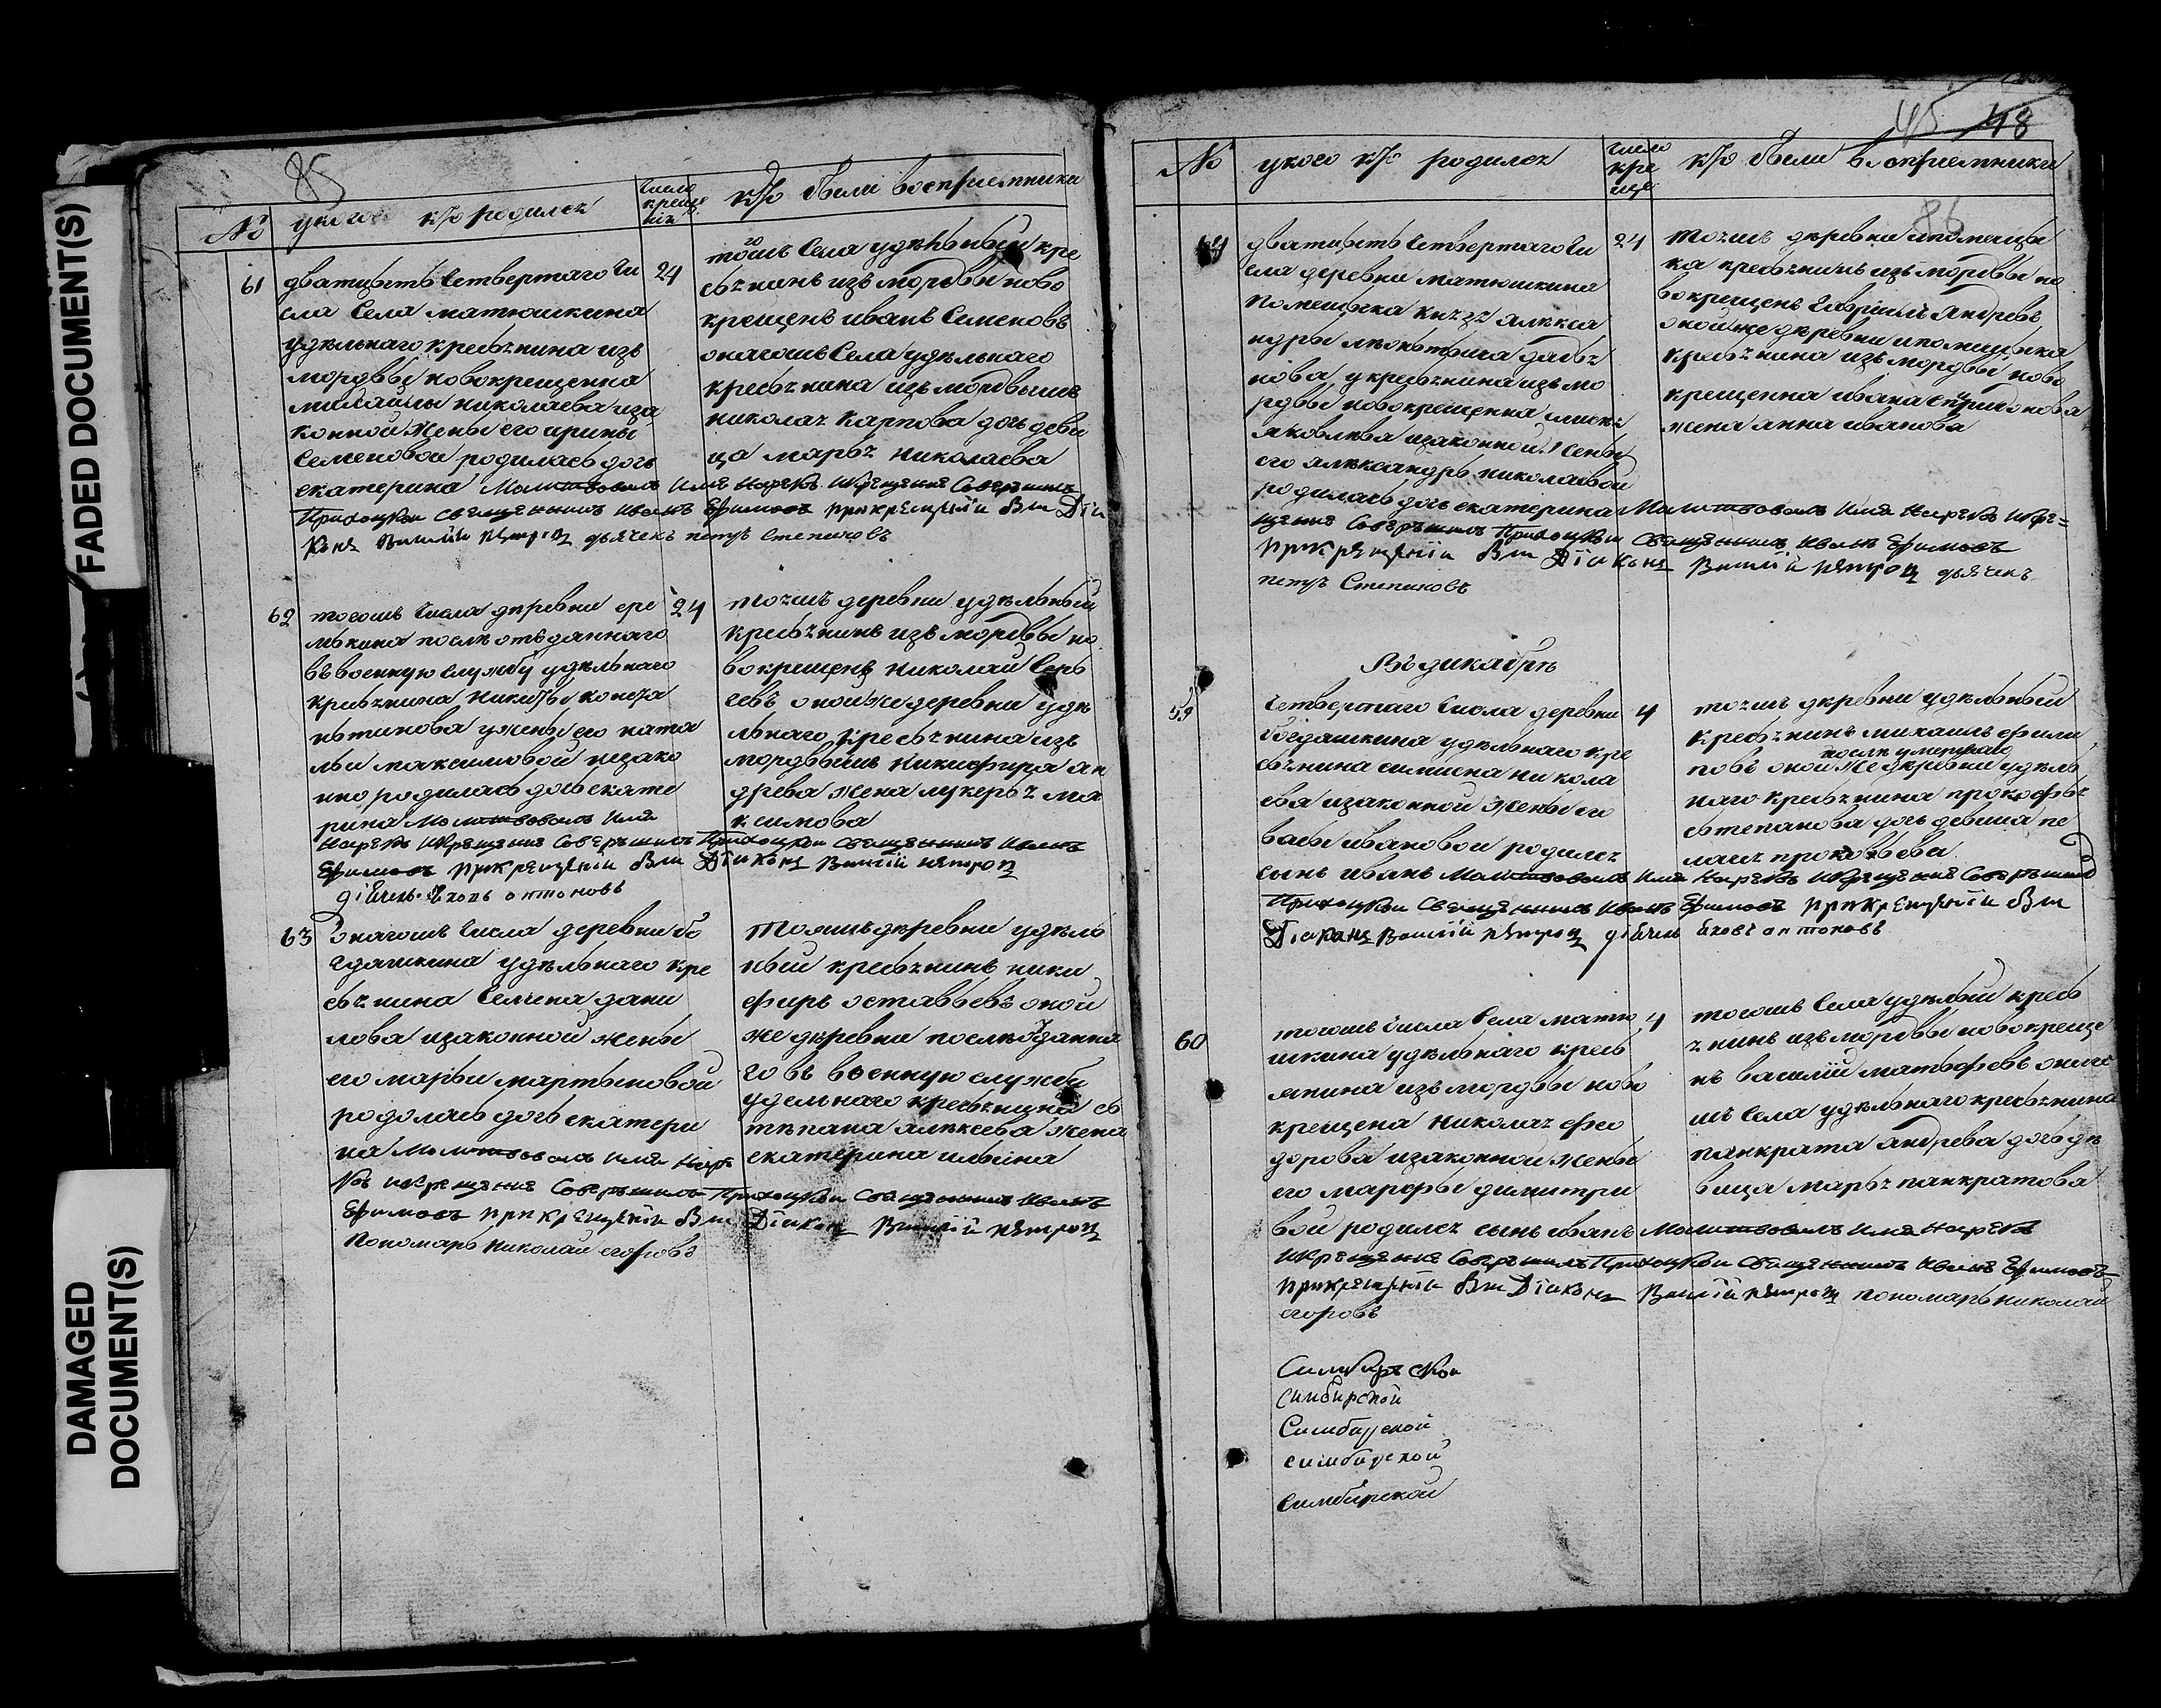 FADED DOCUMENT(S)
DAMAGED
DOCUMENT(S)
85
№ у кого кто родился число креще нія кто были восприемники
61
дватцеть четвертаго чи
сла села матюшкина
удѣльнаго кресьянина изъ
мордвы новокрещенна
михайлы николаева иза
конной жены его ирины
семеновой родилась дочь
екатерина Молитвовалъ Имя Нарѣкъ Икрѣщенiе Совѣршилъ
Приходцкои Свещенникъ Иванъ Ефимовъ прикрещенїи был Дїа
конъ Василїй пѣтровъ дьячекъ петръ степановъ
24
тогошъ села удѣльный кре
сьянинъ изъ мордвы ново
крещенъ иванъ семеновъ
онагошъ села удѣльнаго
кресьянина изъ мордвышъ
николая карпова дочь деви
ца марья николаева
62
тогошъ числа деревни ере
мкина послѣ отъданнаго
въ военную службу удѣльнаго
кресьянина никиты конста
нтинова у жены его ната
льи максимовой незако
нно родилась дочь екате
рина Молитвовалъ Имя
Нарѣкъ Икрѣщенiе Совѣршилъ Приходцкои Свещенникъ Иванъ
Ефимовъ прикрещенїи был Дїаконъ Василїй пѣтровъ
антоновъ
24
тояшъ деревни удѣльный
кресьянинъ изъ мордвы но
вокрещенъ николай серг
еевъ оной же деревни удѣ
льнаго кресьянина изъ
мордвышъ никифира ан
древа жена лукерья ма
ксимова
63
онагошъ числа деревни бо
гдашкина удѣльнаго кре
сьянина семена дани
лова изаконной жены
его марьи мартыновой
родолась дочь екатери
на Молитвовалъ Имя Нарѣ
къ Икрѣщенiе Совѣршилъ Приходцкои Свещенникъ Иванъ
Ефимовъ прикрещенїи был Дїаконъ Василїй пѣтровъ
пономарь николай егоровъ
тояшъ деревни удѣль
ный кресьянинъ ники
фиръ оставьевъ оной
же деревни послѣ отданна
го въ военную службу
удельнаго кресьянина с
тѣпана алѣксева жена
екатерина ильина
45 48
86
№ у кого кто родился число кре ще кто были восприемники
64
дватцеть четвертаго чи
сла деревни матюшкина
помещика князя алѣкса
ндры
нова у кресьянина изъ мо
рдвы новокрещенна
яковлева изаконной жены
его алѣксандры николаевой
родилась дочь екатерина Молитвовалъ Имя Нарѣкъ Икрѣ=
щенiе Совѣршилъ Приходцкои Свещенникъ Иванъ Ефимовъ
прикрещенїи был Дїаконъ Василїй пѣтровъ дьячекъ
петръ Степановъ
24
тояшъ деревни ипомещи
ка кресьянинъ изъ мордвы но
вокрещенъ гаврiилъ андревъ
оной же деревни ипомещика
кресьянина изъ мордвы ново
крещенна ивана спиридонова
жена анна иванова
Въ декабрѣ
59
четвертаго числа деревни
богдашкина удѣльнаго кре
сьянина симиона никола
ева изаконной жены его
васы ивановои родился
сынъ иванъ Молитвовалъ Имя Нарѣкъ Икрѣщенiе Совѣршилъ
Приходцкои Свещенникъ Иванъ Ефимовъ прикрещенїи был
Дїаконъ Василїй пѣтровъ антоновъ
4
тояшъ деревни удѣльный
кресьянинъ михаилъ фили
повъ оной же деревни удѣль
послѣ умершаго
наго кресьянина прокофья
степанова дочь девица пе
лагея прокофьева
60
тогошъ числа села матю
шкина удѣльнаго кресь
янина изъ мордвы ново
крещена николая фео
дорова изаконной жены
его марфы димитри
вой родился сынъ иванъ Молитвовалъ Имя Нарѣкъ
Икрѣщенiе Совѣршилъ Приходцкои Свещенникъ Иванъ Ефимовъ
прикрещенїи был Дїаконъ Василїй пѣтровъ пономарь николай
егоровъ
4
тогошъ села удѣлный кресь
янинъ изъ мордвы новокреще
нъ василїй матьфевъ онаго
шъ села удѣльнаго кресьянина
панкрата андрева дочь дѣ
вица марья панкратова
Симбирской
симбирской
Симбирской
симбирской
симбирской